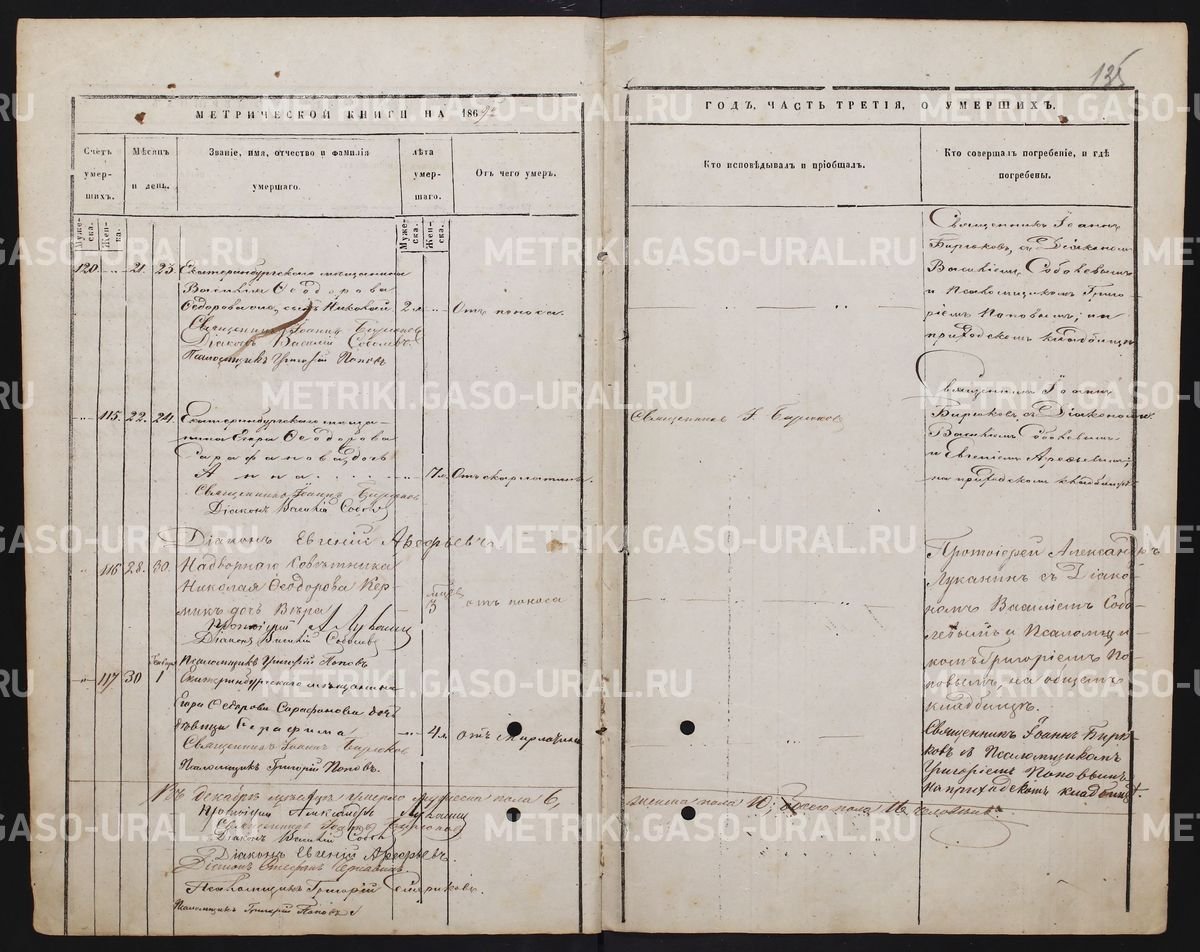 135
МЕТРИЧЕСКОЙ КНИГИ НА 186
ГОДЪ, ЧАСТЬ ТРЕТІЯ, О УМЕРШИХЪ.
Счетъ умер-шихъ.
Мѣсяцъ и день.
Званіе, имя, отчество и фамилія
умершаго.
лѣта умер-шаго.
Отъ чего умеръ.
Кто исповѣдывалъ и пріобщалъ.
Кто совершалъ погребеніе, и гдѣ
погребены.
Муже-ска.
Жен-ка.
Муже-ска.
Жен-ска.
120 21. 23.
Екатеринбургскаго мѣщанина
Василія Ѳеодорова
сынъ Николай 2 л. Отъ поноса.
Священникъ Іоаннъ Бирюковъ
Діаконъ Василій Соболевъ.
Псаломщикъ Григорій Поповъ
Священникъ Іоаннъ
Бирюковъ, съ Діакономъ
Василіемъ Соболевымъ
и Псаломщикомъ Григо-
ріемъ Поповымъ, на
приходскомъ кладбищѣ
115. 22. 24.
Екатеринбургскаго мѣща-
нина Егора Ѳеодорова
Сарафанова, дочь
Анна 7 л. Отъ скарлатины.
Священникъ Іоаннъ Бирюковъ
Діаконъ Василій Соболевъ
Діаконъ Евгеній Арефьевъ.
Священникъ І. Бирюковъ
Священникъ Іоаннъ
Бирюковъ, съ Діакономъ
Василіемъ Соболевымъ
и Евгеніемъ Арефьевымъ,
на приходскомъ кладбищѣ
116 28. 30.
Надворнаго Совѣтника
Николая Ѳеодорова Кер-
микъ дочь Вѣра 3 отъ поноса
Протоіерей А Луканинъ
Діаконъ Василій Соболевъ
Псаломщикъ Григорій Поповъ
Протоіерей Александръ
Луканинъ съ Діако-
номъ Василіемъ Собо-
левымъ и Псаломщи-
комъ Григоріемъ По-
повымъ, на общемъ
кладбищѣ.
117 30 Января 1
Екатеринбургскаго мѣщанина
Егора Ѳедорова Сарафанова дочь
дѣвица Серафима 4 л. отъ
Священникъ Іоаннъ Бирюковъ
Псаломщикъ Григорій Поповъ.
Священникъ Іоаннъ Бирю-
ковъ съ Псаломщикомъ
Григоріемъ Поповымъ
на приходскомъ кладбищѣ.
Въ Декабрѣ мѣсяцѣ умерло мужеска пола 6,
женска пола 10; всего пола 16 человѣкъ.
Протоіерей Александръ Луканинъ
Священникъ Іоаннъ Бирюковъ
Діаконъ Василій Соболевъ
Діаконъ Евгеній Арефьевъ.
Діаконъ Стефанъ
Псаломщикъ Григорій
Псаломщикъ Григорій Поповъ
METRIKI.GASO-URAL.RU